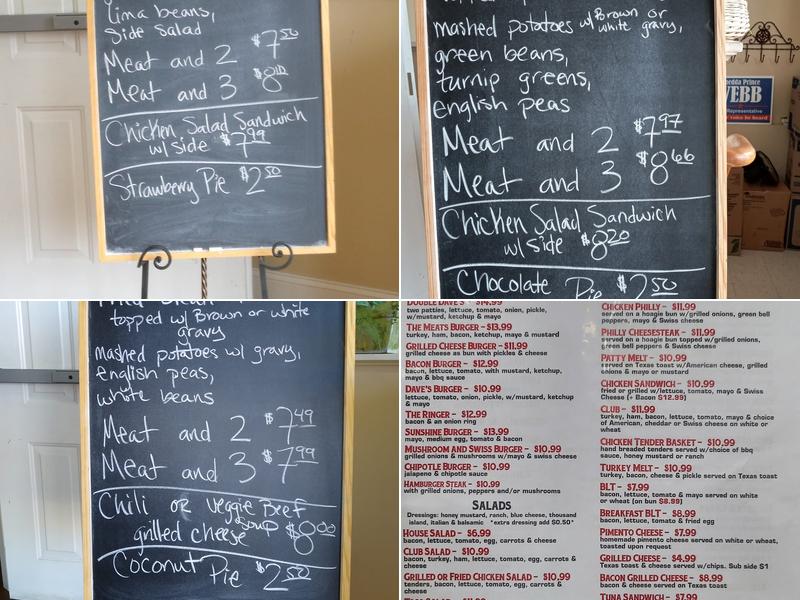 lima beans,
side salad
Meat and 2 $7.50
Meat and 3
Chicken Salad Sandwich
w/side $7.99
Strawberry Pie $2.50
mashed potatoes w/ Brown or
white gravy,
green beans,
turnip greens,
english peas
Meat and 2 $7.97
Meat and 3 $8.66
Chicken Salad Sandwich
w/ side $8.20
Chocolate Pie $2.50
WEBB
Representative
topped w/ Brown or white
gravy
mashed potatoes w/ gravy,
english peas,
white beans
Meat and 2 $7.49
Meat and 3 $7.99
Chili or Veggie Beef
Soup
grilled cheese $8.00
Coconut Pie $2.50
DOUBLE DAVE'S - $14.99
two patties, lettuce, tomato, onion, pickle,
w/mustard, ketchup & mayo
THE MEATS BURGER - $13.99
turkey, ham, bacon, ketchup, mayo & mustard
GRILLED CHEESE BURGER - $11.99
grilled cheese as bun with pickles & cheese
BACON BURGER - $12.99
bacon, lettuce, tomato, with mustard, ketchup,
mayo & bbq sauce
DAVE'S BURGER - $10.99
lettuce, tomato, onion, pickle, w/mustard, ketchup
& mayo
THE RINGER - $12.99
bacon & an onion ring
SUNSHINE BURGER - $13.99
mayo, medium egg, tomato & bacon
MUSHROOM AND SWISS BURGER - $10.99
grilled onions & mushrooms w/mayo & swiss cheese
CHIPOTLE BURGER - $10.99
jalapeno & chipotle sauce
HAMBURGER STEAK - $10.99
with grilled onions, peppers and/or mushrooms
SALADS
Dressings: honey mustard, ranch, blue cheese, thousand
island, italian & balsamic *extra dressing add $0.50*
HOUSE SALAD - $6.99
bacon, lettuce, tomato, egg, carrots & cheese
CLUB SALAD - $10.99
bacon, turkey, ham, lettuce, tomato, egg, carrots &
cheese
GRILLED OR FRIED CHICKEN SALAD - $10.99
tenders, bacon, lettuce, tomato, egg, carrots &
cheese
CHICKEN PHILLY - $11.99
served on a hoagie bun w/grilled onions, green bell
peppers, mayo & Swiss cheese
PHILLY CHEESESTEAK - $11.99
served on a hoagie bun topped w/grilled onions,
green bell peppers & Swiss cheese
PATTY MELT - $10.99
served on Texas toast w/American cheese, grilled
onions & mayo or mustard
CHICKEN SANDWICH - $10.99
fried or grilled w/lettuce, tomato, mayo & Swiss
Cheese (+ Bacon $12.99)
CLUB - $11.99
turkey, ham, bacon, lettuce, tomato, mayo & choice
of American, cheddar or Swiss cheese on white or
wheat
CHICKEN TENDER BASKET - $10.99
hand breaded tenders served w/choice of bbq
sauce, honey mustard or ranch
TURKEY MELT - $10.99
turkey, bacon, cheese & pickle served on Texas toast
BLT - $7.99
bacon, lettuce, tomato & mayo served on white
or wheat (on bun $8.99)
BREAKFAST BLT - $8.99
bacon, lettuce, tomato & fried egg
PIMENTO CHEESE - $7.99
homemade pimento cheese served on white or wheat,
toasted upon request
GRILLED CHEESE - $4.99
Texas toast & cheese served w/chips. Sub side $1
BACON GRILLED CHEESE - $8.99
bacon & cheese served on Texas toast
TUNA SANDWICH - $7.99